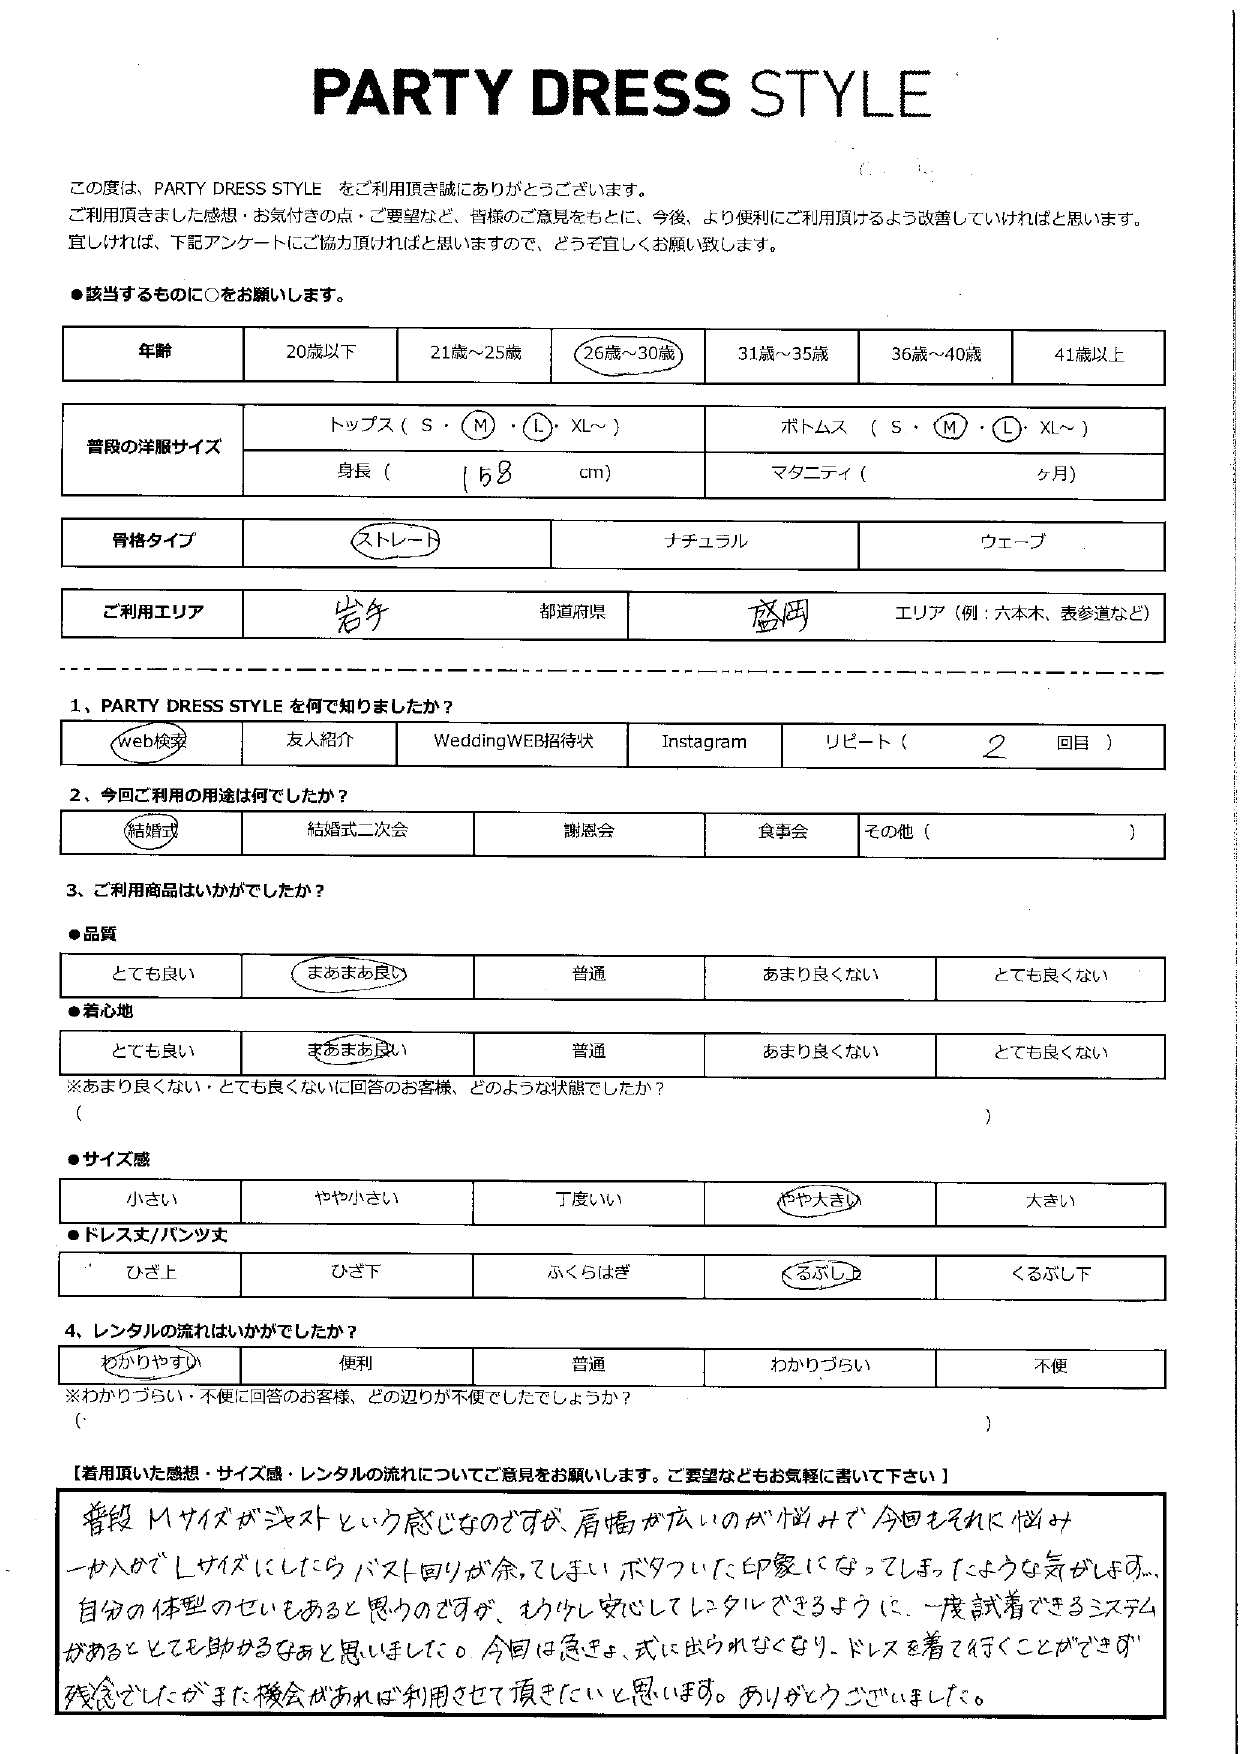 PARTY DRESS STYLE
この度は、PARTY DRESS STYLE をご利用頂き誠にありがとうございます。
ご利用頂きました感想・お気付きの点・ご要望など、皆様のご意見をもとに、今後、より便利にご利用頂けるよう改善していければと思います。
宜しければ、下記アンケートにご協力頂ければと思いますので、どうぞ宜しくお願い致します。
●該当するものに○をお願いします。
年齢 20歳以下 21歳～25歳 26歳～30歳 31歳～35歳 36歳～40歳 41歳以上
普段の洋服サイズ トップス ( S ・ M ・ L ・ XL～ ) ボトムス ( S ・ M ・ L ・ XL～ )
身長 ( 158 cm) マタニティ ( ヶ月)
骨格タイプ ストレート ナチュラル ウェーブ
ご利用エリア 岩手 都道府県 盛岡 エリア（例：六本木、表参道など）
1、PARTY DRESS STYLE を何で知りましたか？
web検索 友人紹介 WeddingWEB招待状 Instagram リピート ( 2 回目 )
2、今回ご利用の用途は何でしたか？
結婚式 結婚式二次会 謝恩会 食事会 その他 ( )
3、ご利用商品はいかがでしたか？
●品質
とても良い まあまあ良い 普通 あまり良くない とても良くない
●着心地
とても良い まあまあ良い 普通 あまり良くない とても良くない
※あまり良くない・とても良くないに回答のお客様、どのような状態でしたか？
( )
●サイズ感
小さい やや小さい 丁度いい やや大きい 大きい
●ドレス丈/パンツ丈
ひざ上 ひざ下 ふくらはぎ くるぶし上 くるぶし下
4、レンタルの流れはいかがでしたか？
わかりやすい 便利 普通 わかりづらい 不便
※わかりづらい・不便に回答のお客様、どの辺りが不便でしたでしょうか？
( )
【着用頂いた感想・サイズ感・レンタルの流れについてご意見をお願いします。ご要望などもお気軽に書いて下さい】
普段 Mサイズがジャストという感じなのですが、肩幅が広いのが悩みで今回もそれに悩み
一か八かでLサイズにしたらバスト回りが余ってしまいボタついた印象になってしまったような気がします…。
自分の体型のせいもあると思うのですが、もう少し安心してレンタルできるように、一度試着できるシステム
があるととても助かるなぁと思いました。今回は急きょ、式に出られなくなり、ドレスを着て行くことができず
残念でしたがまた機会があれば利用させて頂きたいと思います。ありがとうございました。